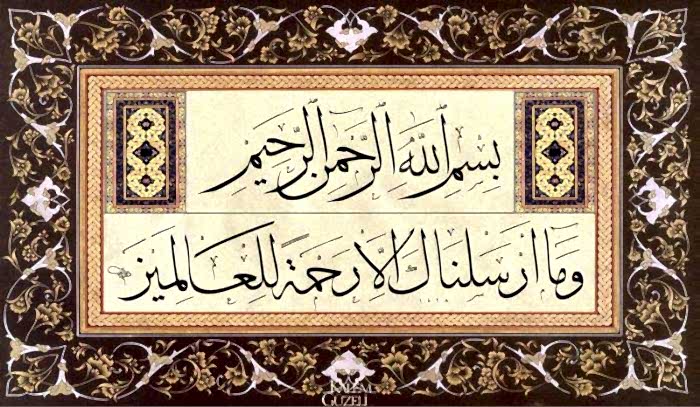 بِسْمِ اللَّهِ الرَّحْمٰنِ الرَّحِيمِ
وَمَا أَرْسَلْنَاكَ إِلَّا رَحْمَةً لِلْعَالَمِينَ
KALEM
GÜZELİ